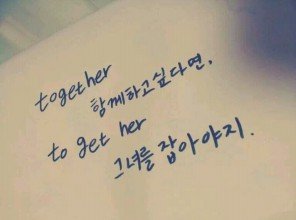 together
함께하고싶다면,
to get her
그녀를 잡아야지.